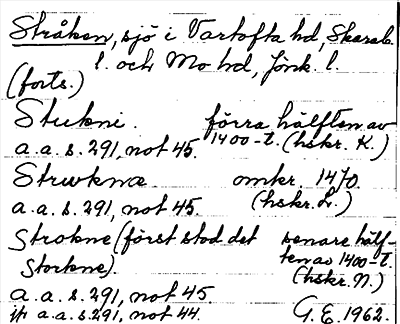 Stråken, sjö i Vartofta hd, Skarab.
l. och Mo hd, Jönk. l.
(forts.)
Stukni. förra hälften av
a.a.s. 291, not 45. 1400-t. (hskr. K.)
Strwknæ omkr. 1470.
a.a.s. 291, not 45. (hskr. L.)
Strokne (först stod det senare hälf-
Storkne). ten av 1400-t.
(hskr. N.)
a.a.s. 291, not 45
jfr a.a.s. 291, not 44. G.E. 1962.